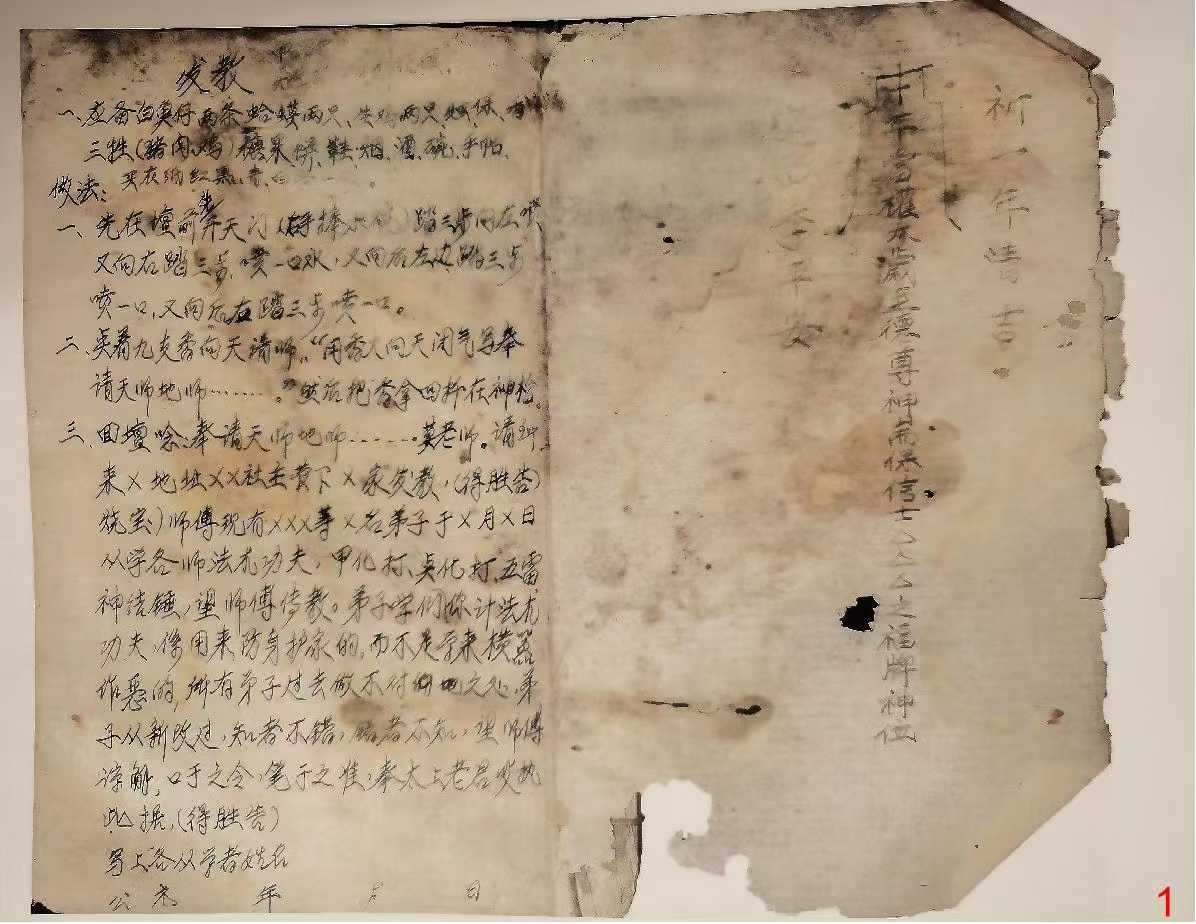 发教
一、应备白真仔两条蛤蟆两只、生鸡两只
三牲(猪肉鸡)糖果饼、鞋、烟、酒、碗、手帕、
做法:
一、先在壇前开天门(右手捧水化)踏三步向左喷
又向右踏三步,喷一口水,又向后左边踏三步
喷一口,又向后右踏三步喷一口。
二、点着九支香向天请师,“用香人向天闭气
请天师地师………。”然后把香拿回插在神
三、回壇唸:奉请天师地师………莫老师。请
来×地址××社主黄下×家发教,(得胜告)
烧宝)师傅现有×××等×名弟子于×月×日
从学各师法尤功夫,甲化打、真化打、五雷
神结锤,望师傅传教。弟子学
功夫,係用来防身护家的,而不是学来横
作恶的,所有弟子过去做不对的地之处,弟
子从新改过,知者不错,错者不知,望师傅
谅解,口于之令,笔于之准,奉太上老君
此据,(得胜告)
写上各从学者姓名
公元 年 月 日
祈一年清吉
德尊神
保信士
之禄牌神位
季平安
1